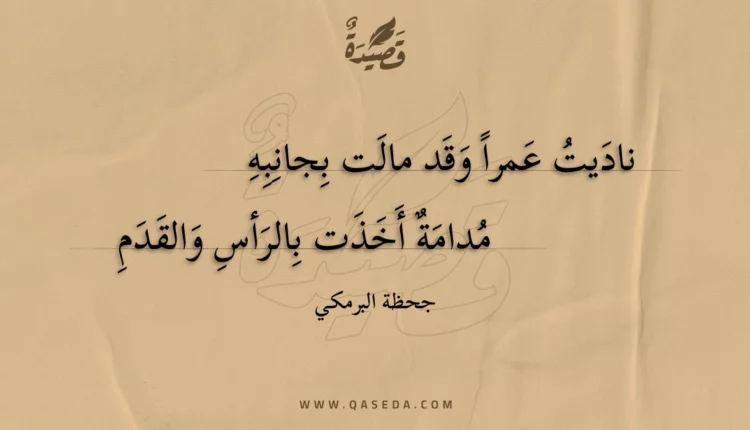 قَصِيدَةٌ
نادَيتُ عَمراً وَقَد مالَت بِجانِبِهِ
مُدامَةٌ أَخَذَت بِالرَأسِ وَالقَدَمِ
جحظة البرمكي
WWW.QASEDA.COM